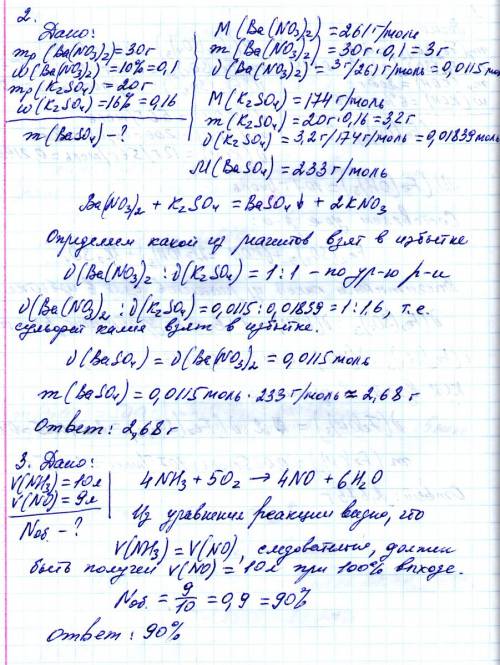 2.
Дано:
mр (Ba(NO3)2) = 30г
ω(Ba(NO3)2) = 10% = 0,1
mр(K2SO4) = 20г
ω(K2SO4) = 16% = 0,16
m(BaSO4) - ?
M(Ba(NO3)2) = 261 г/моль
m(Ba(NO3)2) = 30г·0,1 = 3г
υ(Ba(NO3)2) = 3г/261 г/моль = 0,0115 мол
M(K2SO4) = 174 г/моль
m(K2SO4) = 20г·0,16 = 3,2г
υ(K2SO4) = 3,2г/174 г/моль = 0,01839 моль
M(BaSO4) = 233 г/моль
Ba(NO3)2 + K2SO4 = BaSO4↓ + 2KNO3
Определяем какой из реагентов взят в избытке
υ(Ba(NO3)2) : υ(K2SO4) = 1:1 - по ур-ю р-и
υ(Ba(NO3)2) : υ(K2SO4) = 0,0115 : 0,01839 = 1:1,6, т.е.
сульфат калия взят в избытке.
υ(BaSO4) = υ(Ba(NO3)2) = 0,0115 моль
m(BaSO4) = 0,0115 моль · 233 г/моль ≈ 2,68 г
Ответ: 2,68 г
3. Дано:
V(NH3) = 10л
V(NO) = 9л
Nоб. - ?
4NH3 + 5O2 → 4NO + 6H2O
Из уравнения реакции видно, что
V(NH3) = V(NO), следовательно, должен
быть получен V(NO) = 10л при 100% выходе.
Nоб. = 9/10 = 0,9 = 90%
Ответ: 90%